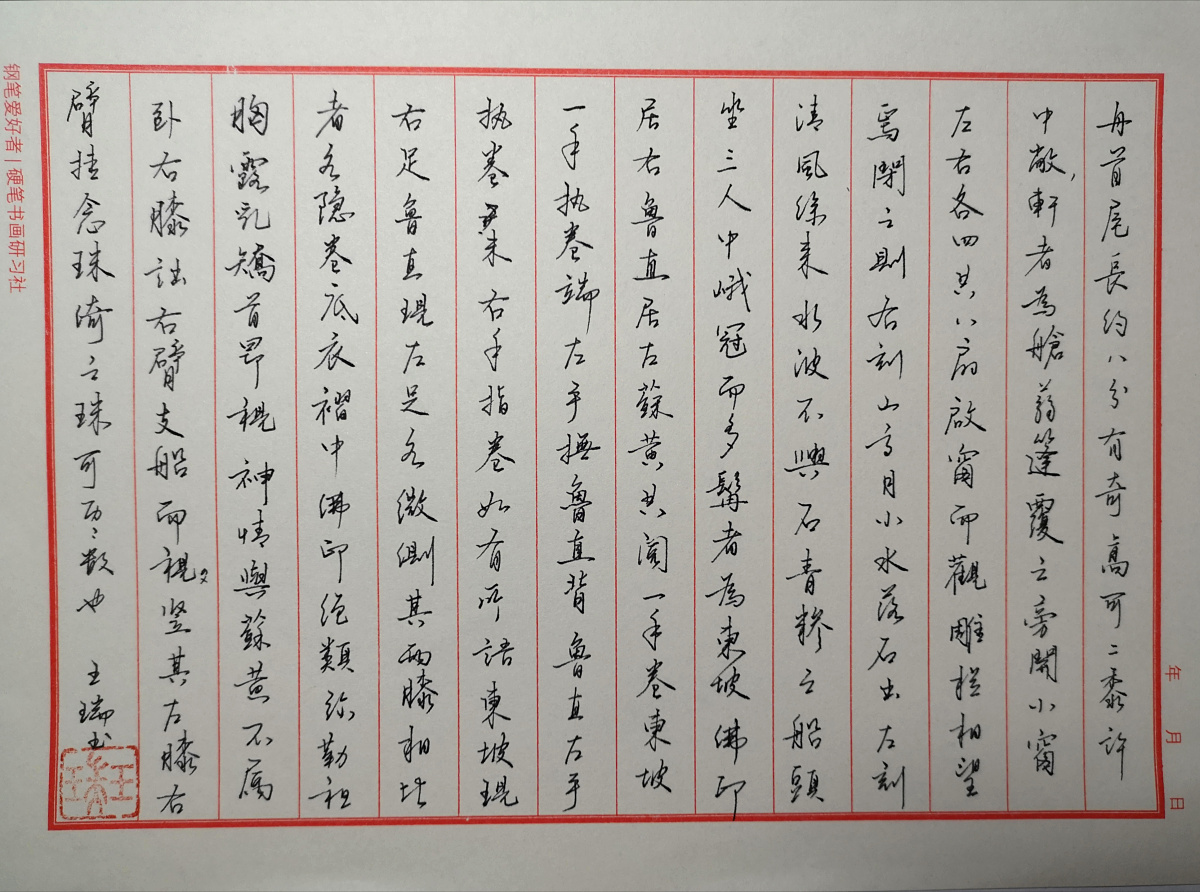 年 月 日
舟首尾長約八分有奇高可二黍許
中敞軒者為艙蒻篷覆之旁開小窗
左右各四共八扇啟窗而觀雕栏相望
焉閉之則右刻山高月小水落石出左刻
清風徐来水波不興石青糝之船頭
坐三人中峨冠而多髯者為東坡佛印
居右魯直居左蘇黄共閲一手卷東坡
一手执卷端左手撫魯直背魯直左手
执卷末右手指卷如有所語東坡現
右足魯直現左足各微側其兩膝相比
者各隐卷底衣褶中佛印绝類弥勒袒
胸露乳矯首昂視神情與蘇黄不属
卧右膝詘右臂支船而視竖其左膝右
臂挂念珠倚之珠可历〻数也 王瑞书
钢笔爱好者|硬笔书画研习社